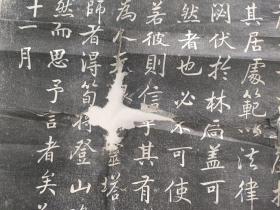 其居處範以法律
闼伏於林扃盖可
然者也必不可使
若彼則信乎其有
為介
塔
師者得筍將登山
然而思予言者矣
十一月